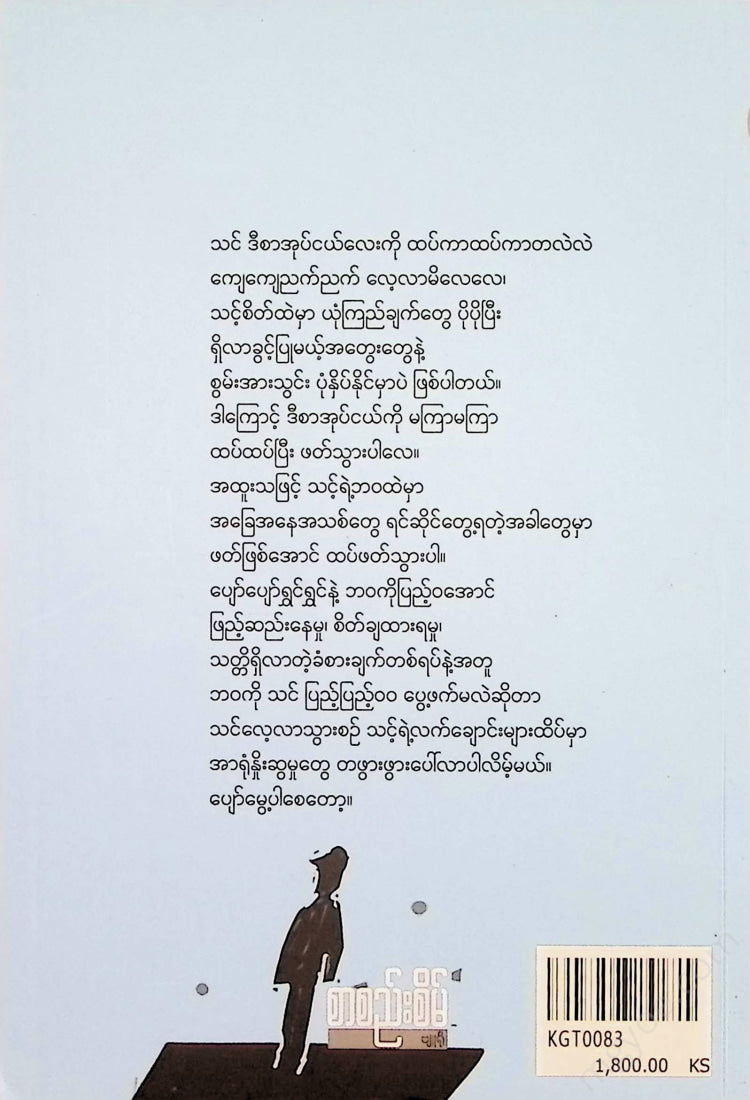 သင် ဒီစာအုပ်ငယ်လေးကို ထပ်ကာထပ်ကာတလဲလဲ
ကျေကျေညက်ညက် လေ့လာမိလေလေ၊
သင့်စိတ်ထဲမှာ ယုံကြည်ချက်တွေ ပိုပိုပြီး
ရှိလာခွင့်ပြုမယ့်အတွေးတွေနဲ့
စွမ်းအားသွင်း ပုံနှိပ်နိုင်မှာပဲ ဖြစ်ပါတယ်။
ဒါကြောင့် ဒီစာအုပ်ငယ်ကို မကြာမကြာ
ထပ်ထပ်ပြီး ဖတ်သွားပါလေ။
အထူးသဖြင့် သင့်ရဲ့ဘဝထဲမှာ
အခြေအနေအသစ်တွေ ရင်ဆိုင်တွေ့ရတဲ့အခါတွေမှာ
ဖတ်ဖြစ်အောင် ထပ်ဖတ်သွားပါ။
ပျော်ပျော်ရွှင်ရွှင်နဲ့ ဘဝကိုပြည့်ဝအောင်
ဖြည့်ဆည်းနေမှု၊ စိတ်ချထားရမှု၊
သတ္တိရှိလာတဲ့ခံစားချက်တစ်ရပ်နဲ့အတူ
ဘဝကို သင် ပြည့်ပြည့်ဝဝ ပွေ့ဖက်မလဲဆိုတာ
သင်လေ့လာသွားစဉ် သင့်ရဲ့လက်ချောင်းများထိပ်မှာ
အာရုံနှိုးဆွမှုတွေ တဖွားဖွားပေါ်လာပါလိမ့်မယ်။
ပျော်မွေ့ပါစေတော့။
စာစည်းစိမ်
KGT0083
1,800.00 KS